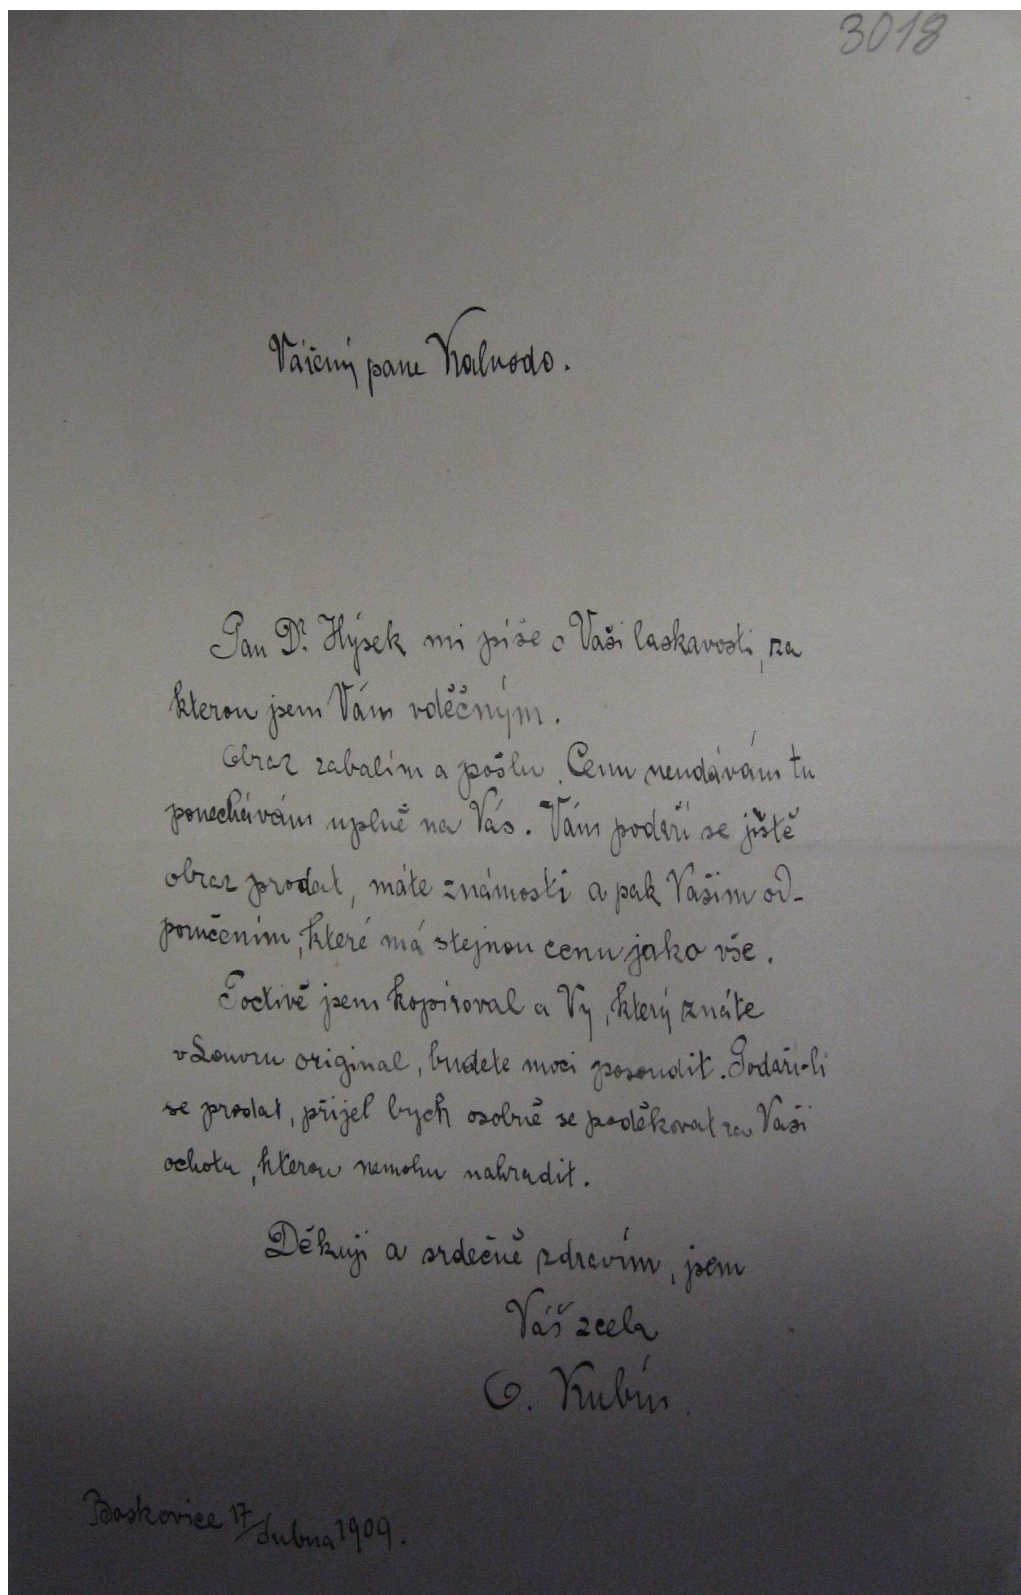 3018
Váčený pane Kalvodo.
Pan Dr. Hýsek mi píše o Vaši laskavosti, za
kterou jsem Vám vděčným.
Obraz zabalím a pošlu. Cenu neudávám tu
ponechávám uplně na Vás. Vám podaří se jistě
obraz prodat, máte známosti a pak Vašim od-
poručením, které má stejnou cenu jako vše.
Poctivě jsem kopiroval a Vy, který znáte
v Louvru original, budete moci posoudit. Podaří-li
se prodat, přijel bych osobně se poděkovat za Vaši
ochotu, kterou nemohu nahradit.
Děkuji a srdečně zdravím, jsem
Váš zcela
O. Kubín.
Boskovice 17/dubna 1909.